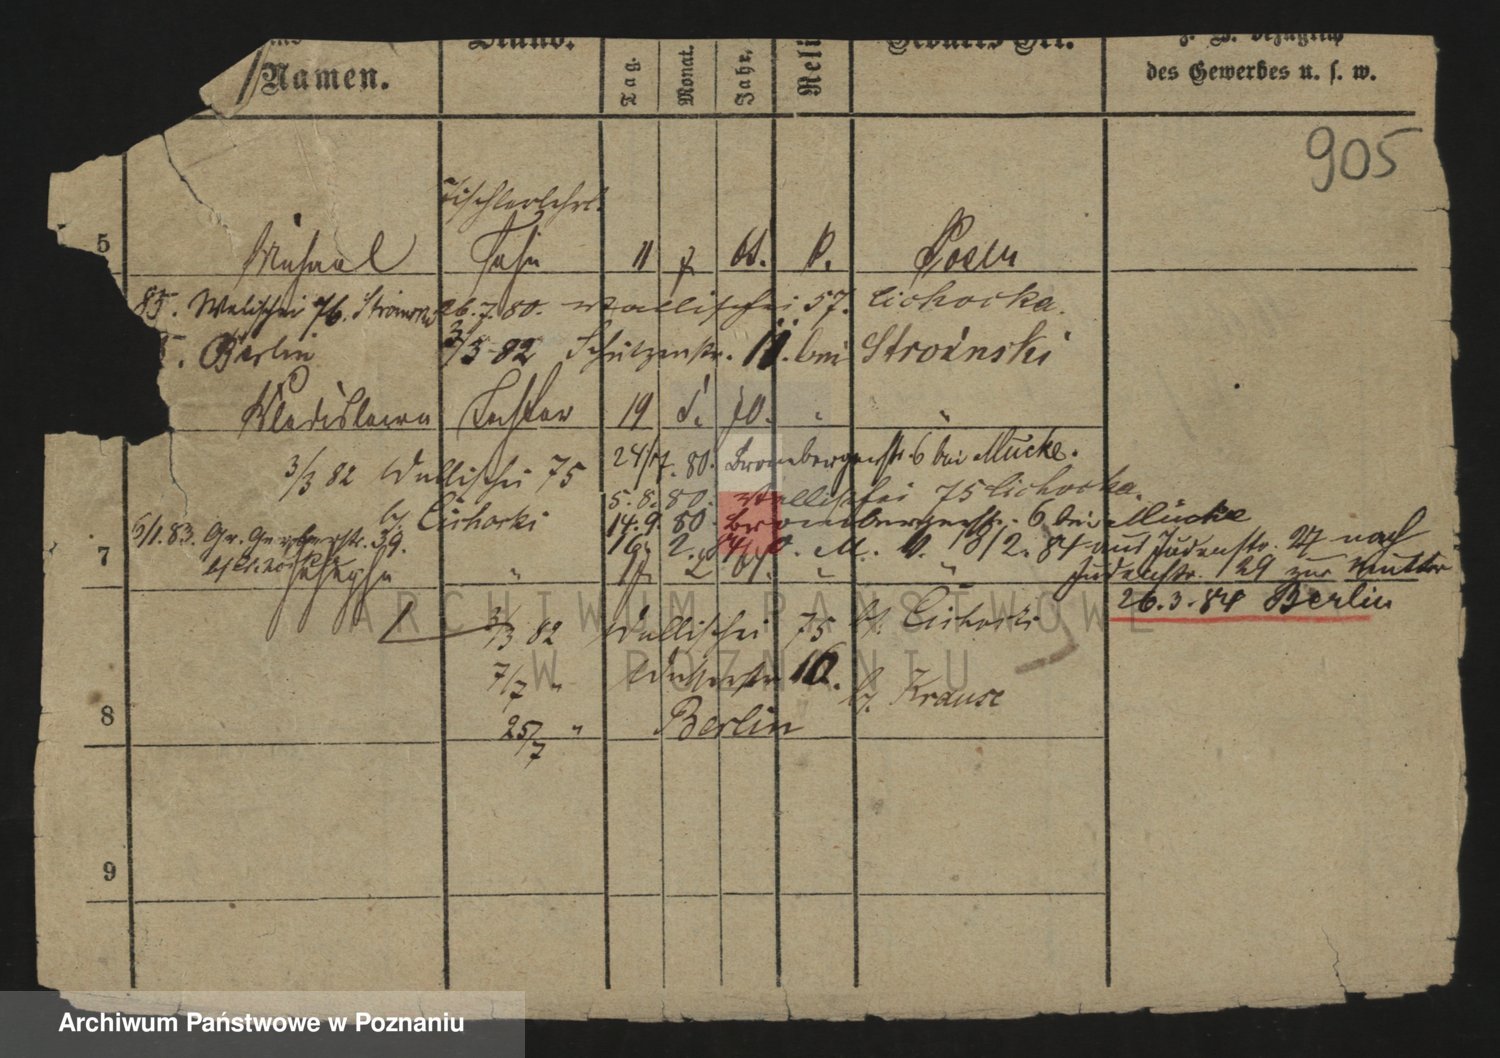 Namen.
Stand.
Tag.
Monat.
Jahr.
Reli
Geburts Ort.
z. B. bezüglich
des Gewerbes u. s. w.
905
Tischlerlehrl.
5 Michael Sohn 11 7 61. k. Posen
85. Walischei 76. 26.7.80. Wallischei 57. Cichocka.
Berlin 3/3 82 Schützenstr. 11. bei Stroinski
Wladislawa Tochter 19 5. 70. " "
3/3 82 Wallischei 75 24/7. 80. Brombergerstr. 6 bei Mücke.
5.8.80. Wallischei 75 Cichocka.
bj. Cichocki 14.9.80 Brombergerstr. 6 bei Mücke
6/1.83. Gr. Gerberstr. 39. 13/2.84 aus Judenstr. 27 nach
7 Josepha " " " Judenstr. 29 zur Mutter
26.3.84 Berlin
3/3 82 Wallischei 75 bj. Cichocki
7/7 " 10. bj. Krause
8 25/7 " Berlin
9
ARCHIWUM PAŃSTWOWE
W POZNANIU
Archiwum Państwowe w Poznaniu